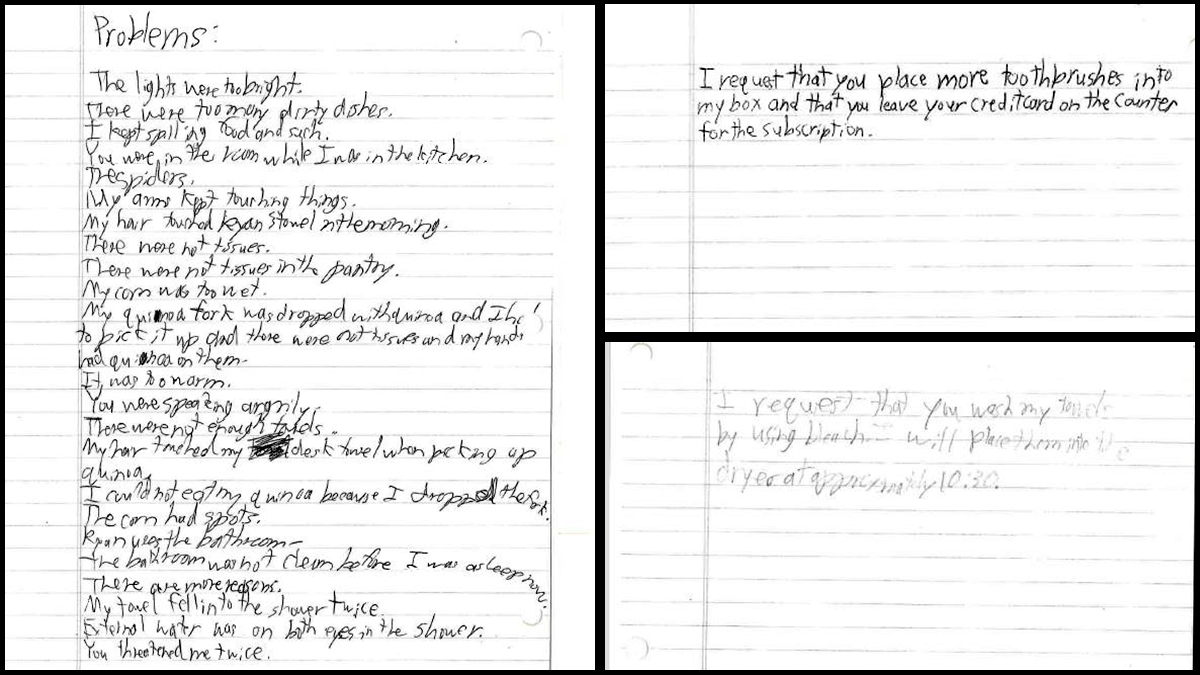 Problems:
The lights were too bright.
There were too many dirty dishes.
I kept spilling food and such.
You were in the room while I was in the kitchen.
The spiders.
My arms kept touching things.
My hair touched Ryan's towel in the morning.
There were not tissues.
There were not tissues in the pantry.
My corn was too wet.
My quinoa fork was dropped with quinoa and I
to pick it up and there were not tissues and my hands
had quinoa on them.
It was too warm.
You were speaking angrily.
There were not enough towels.
My hair touched my desk towel when picking up
quinoa.
I could not eat my quinoa because I dropped the fork.
The corn had spots.
Ryan uses the bathroom
the bathroom was not clean before I was asleep now.
There are more reasons.
My towel fell into the shower twice.
External water was on both eyes in the shower.
You threatened me twice.
I request that you place more toothbrushes into
my box and that you leave your credit card on the counter
for the subscription.
I request that you wash my towels
by using bleach will place them into the
dryer at approximately 10:30.